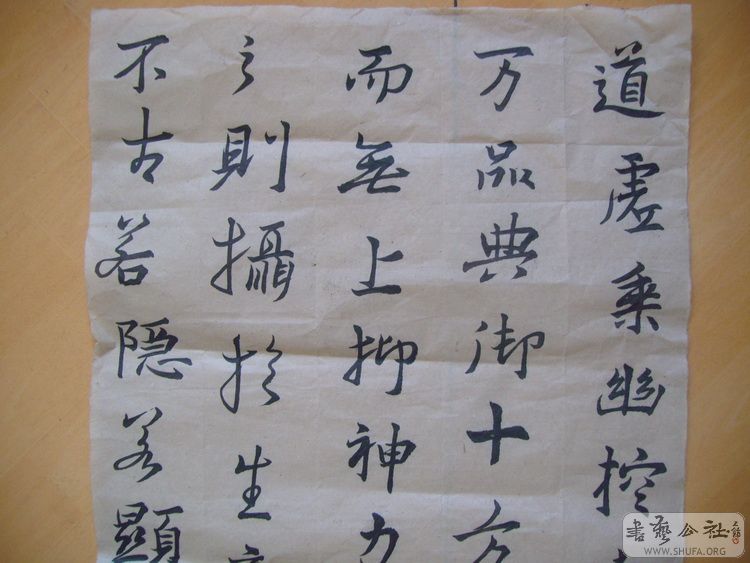 道虚乘幽控
万品典御十方
而无上抑神力
之則攝於生
不古若隐若顯
書藝公社
WWW.SHUFA.ORG